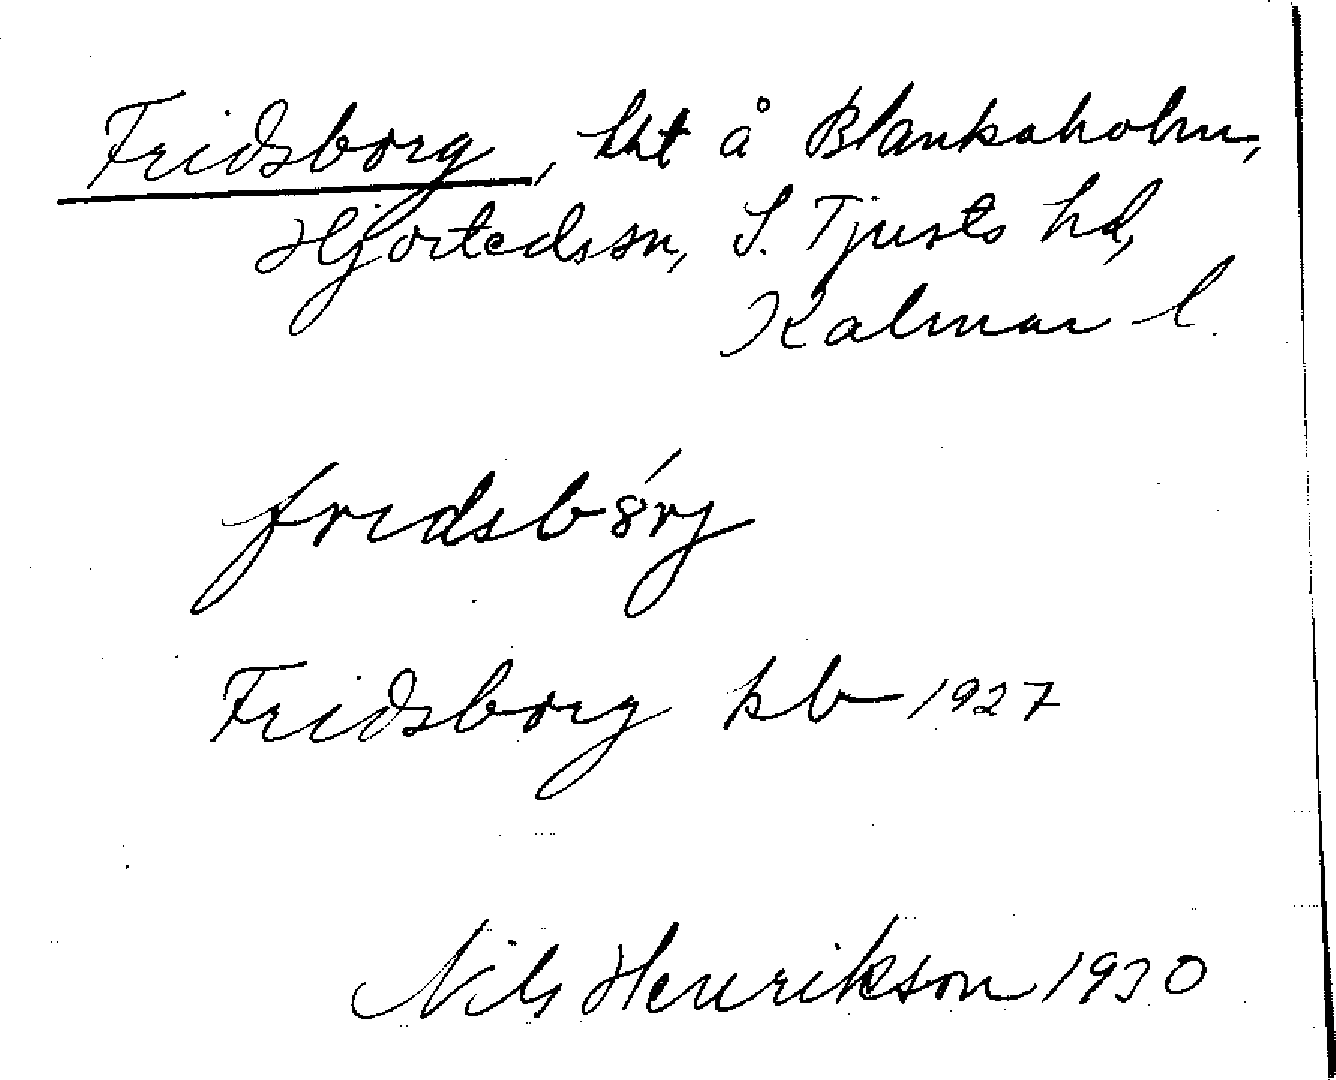 Fridsborg, lht å Blankaholm,
Hjortedssn, S. Tjusts hd,
Kalmar l.
fridsbórj
Fridsborg kb 1927
Nils Henrikson 1930